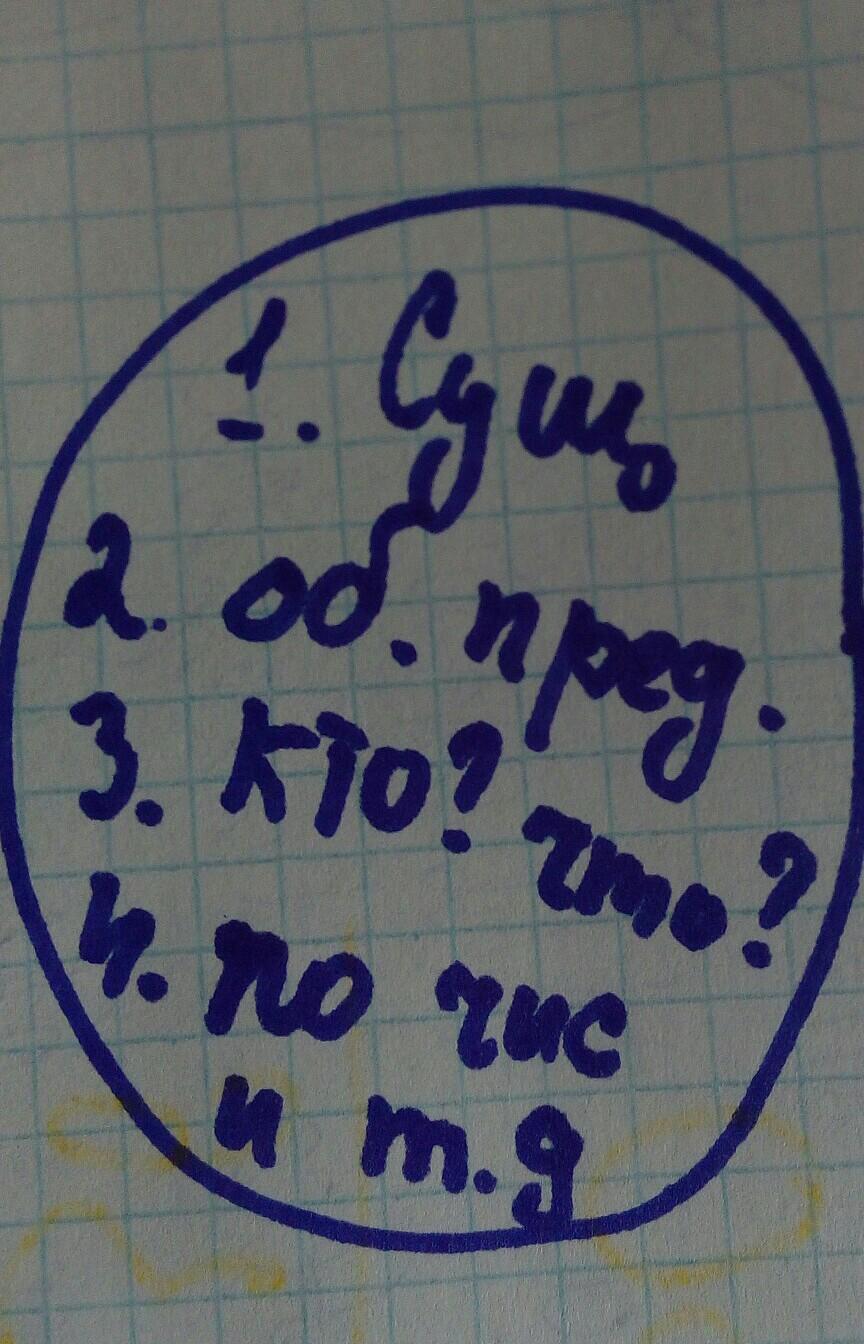 1. Сущ
2. об. пред.
3. кто? что?
4. по чис
и т.д